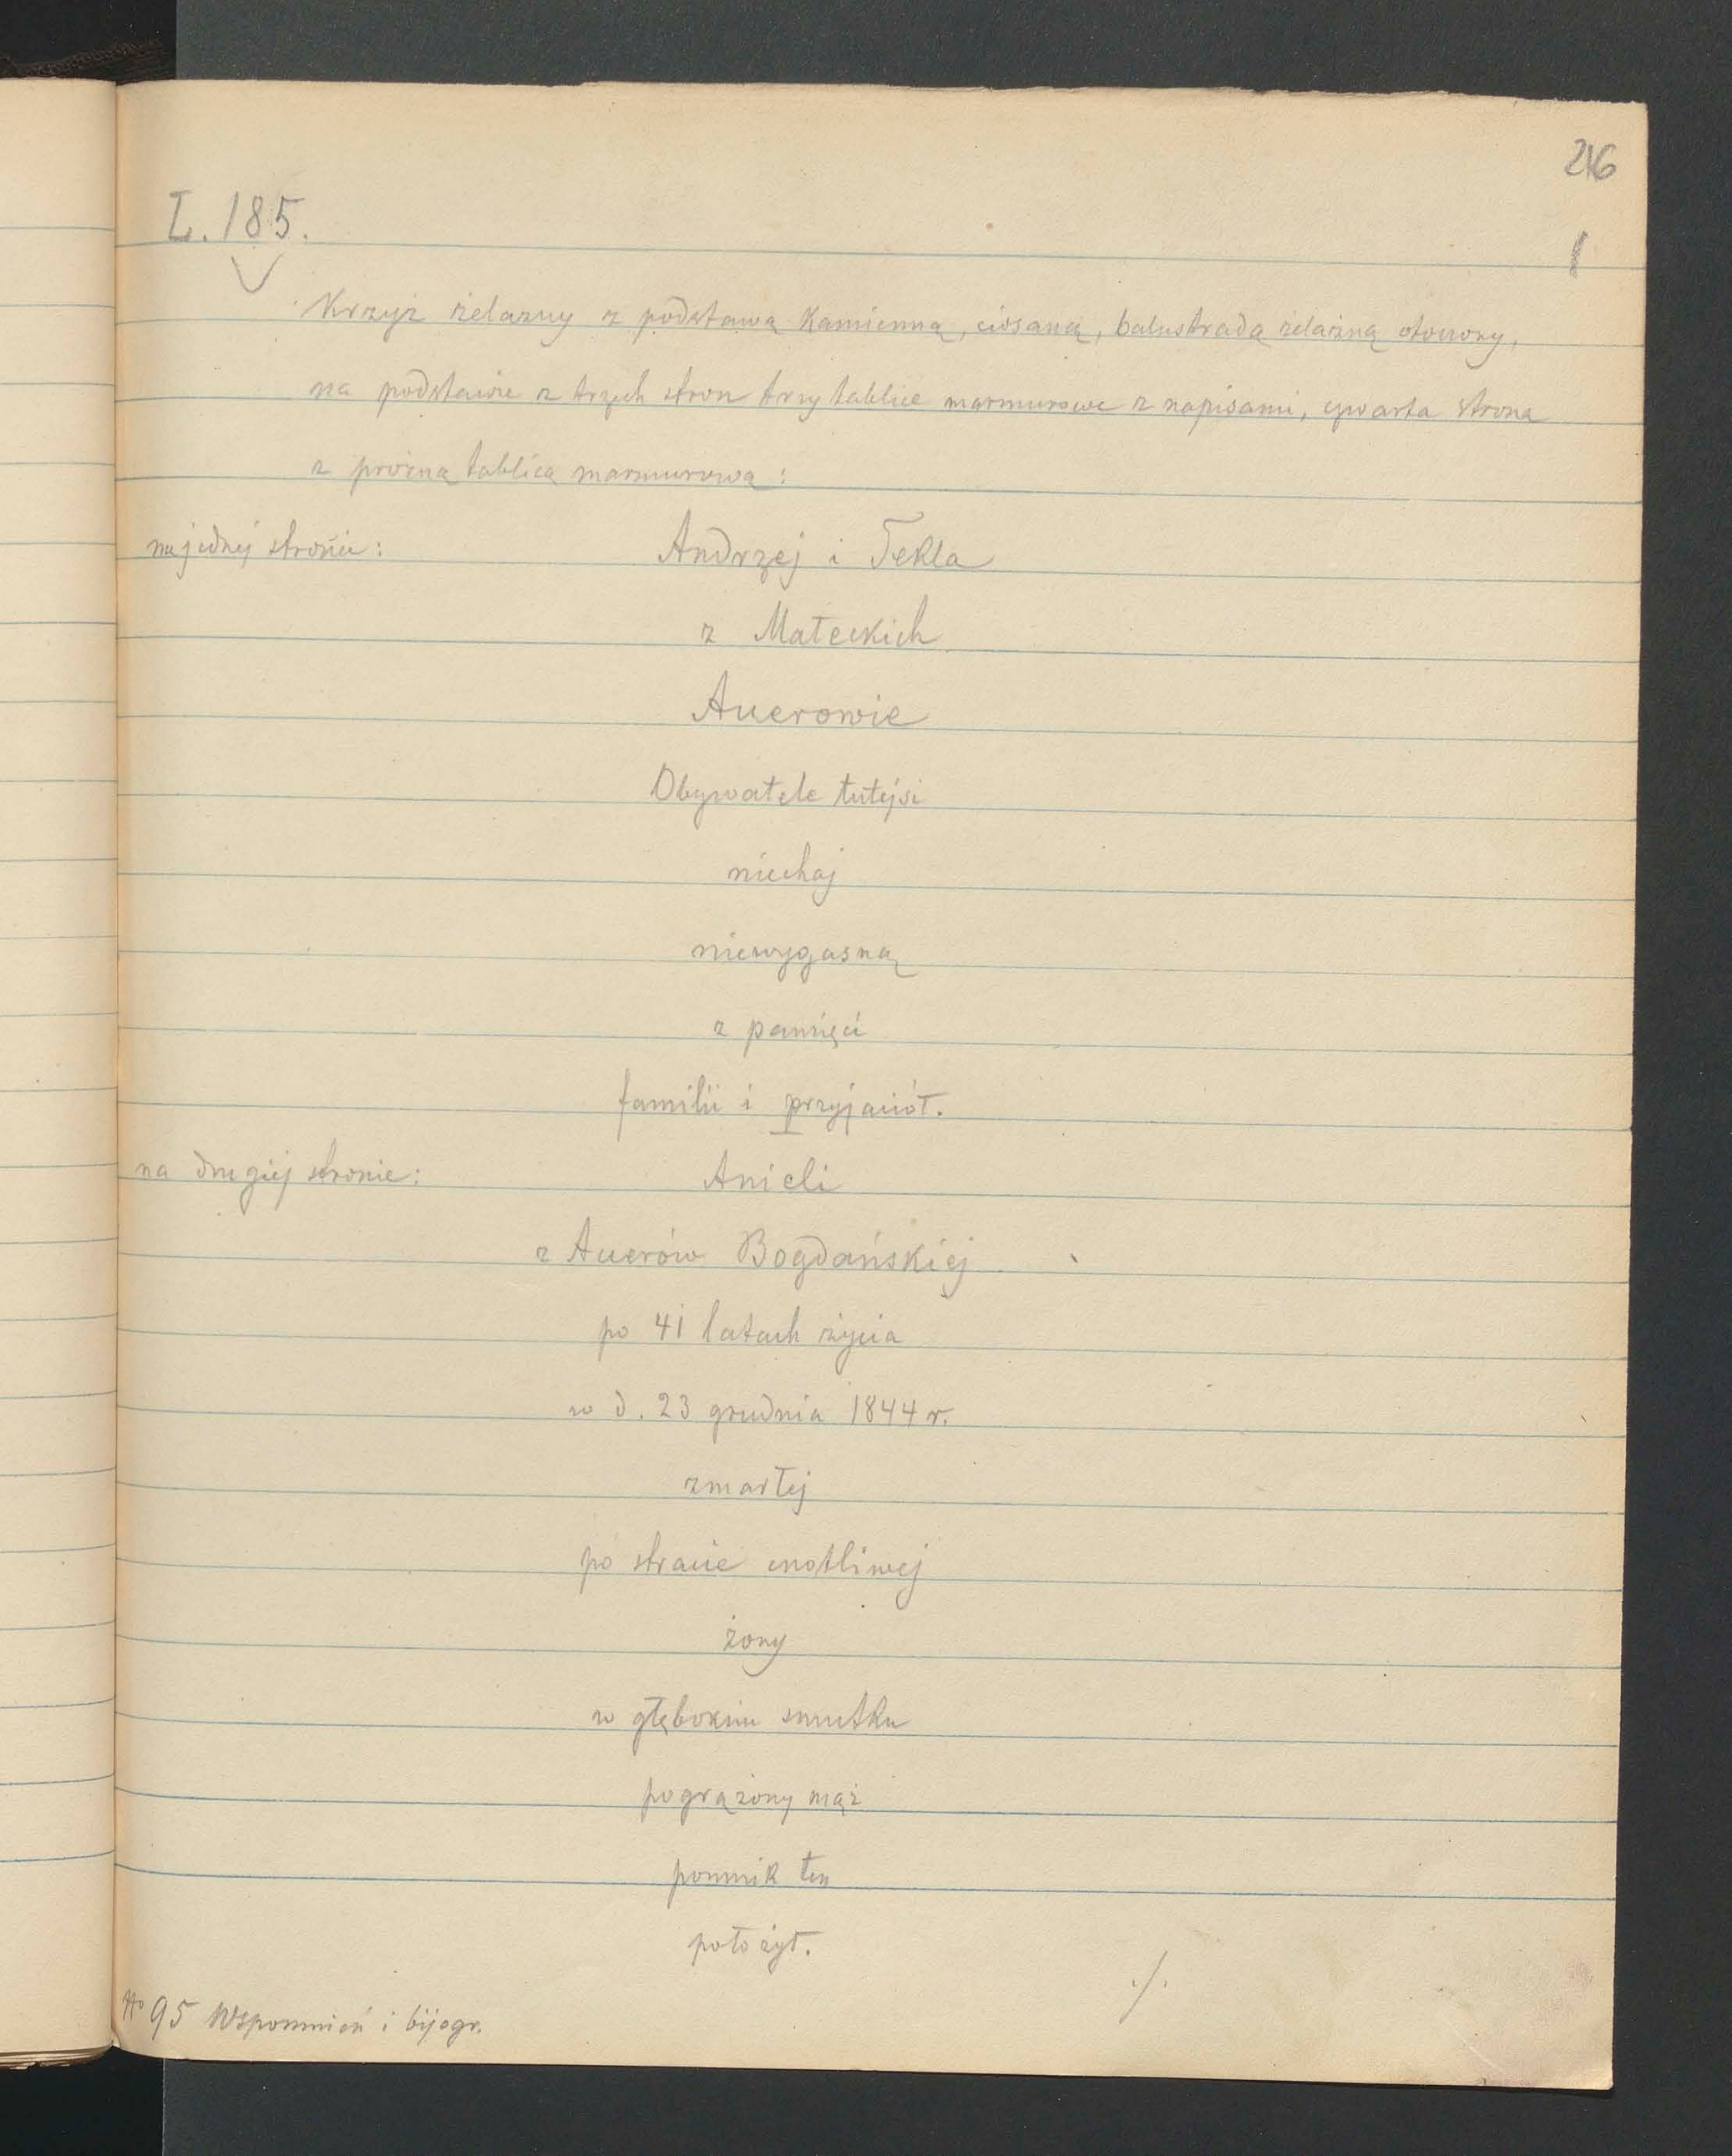 216
L. 185.
Krzyż żelazny z podstawą kamienną, ciosaną, balustradą żelazną otoczony,
na podstawie z trzech stron trzy tablice marmurowe z napisami, czwarta strona
z próżną tablicą marmurową:
na jednej stronie: Andrzej i Tekla
z Małeckich
Auerowie
Obywatele tutejsi
niechaj
niewygasną
z pamięci
familii i przyjaciół.
na drugiej stronie: Anieli
z Auerów Bogdańskiej
po 41 latach życia
w d. 23 grudnia 1844 r.
zmarłej
po stracie cnotliwej
żony
w głębokim smutku
pogrążony mąż
pomnik ten
położył.
./.
No 95 Wspomnień i bijogr.